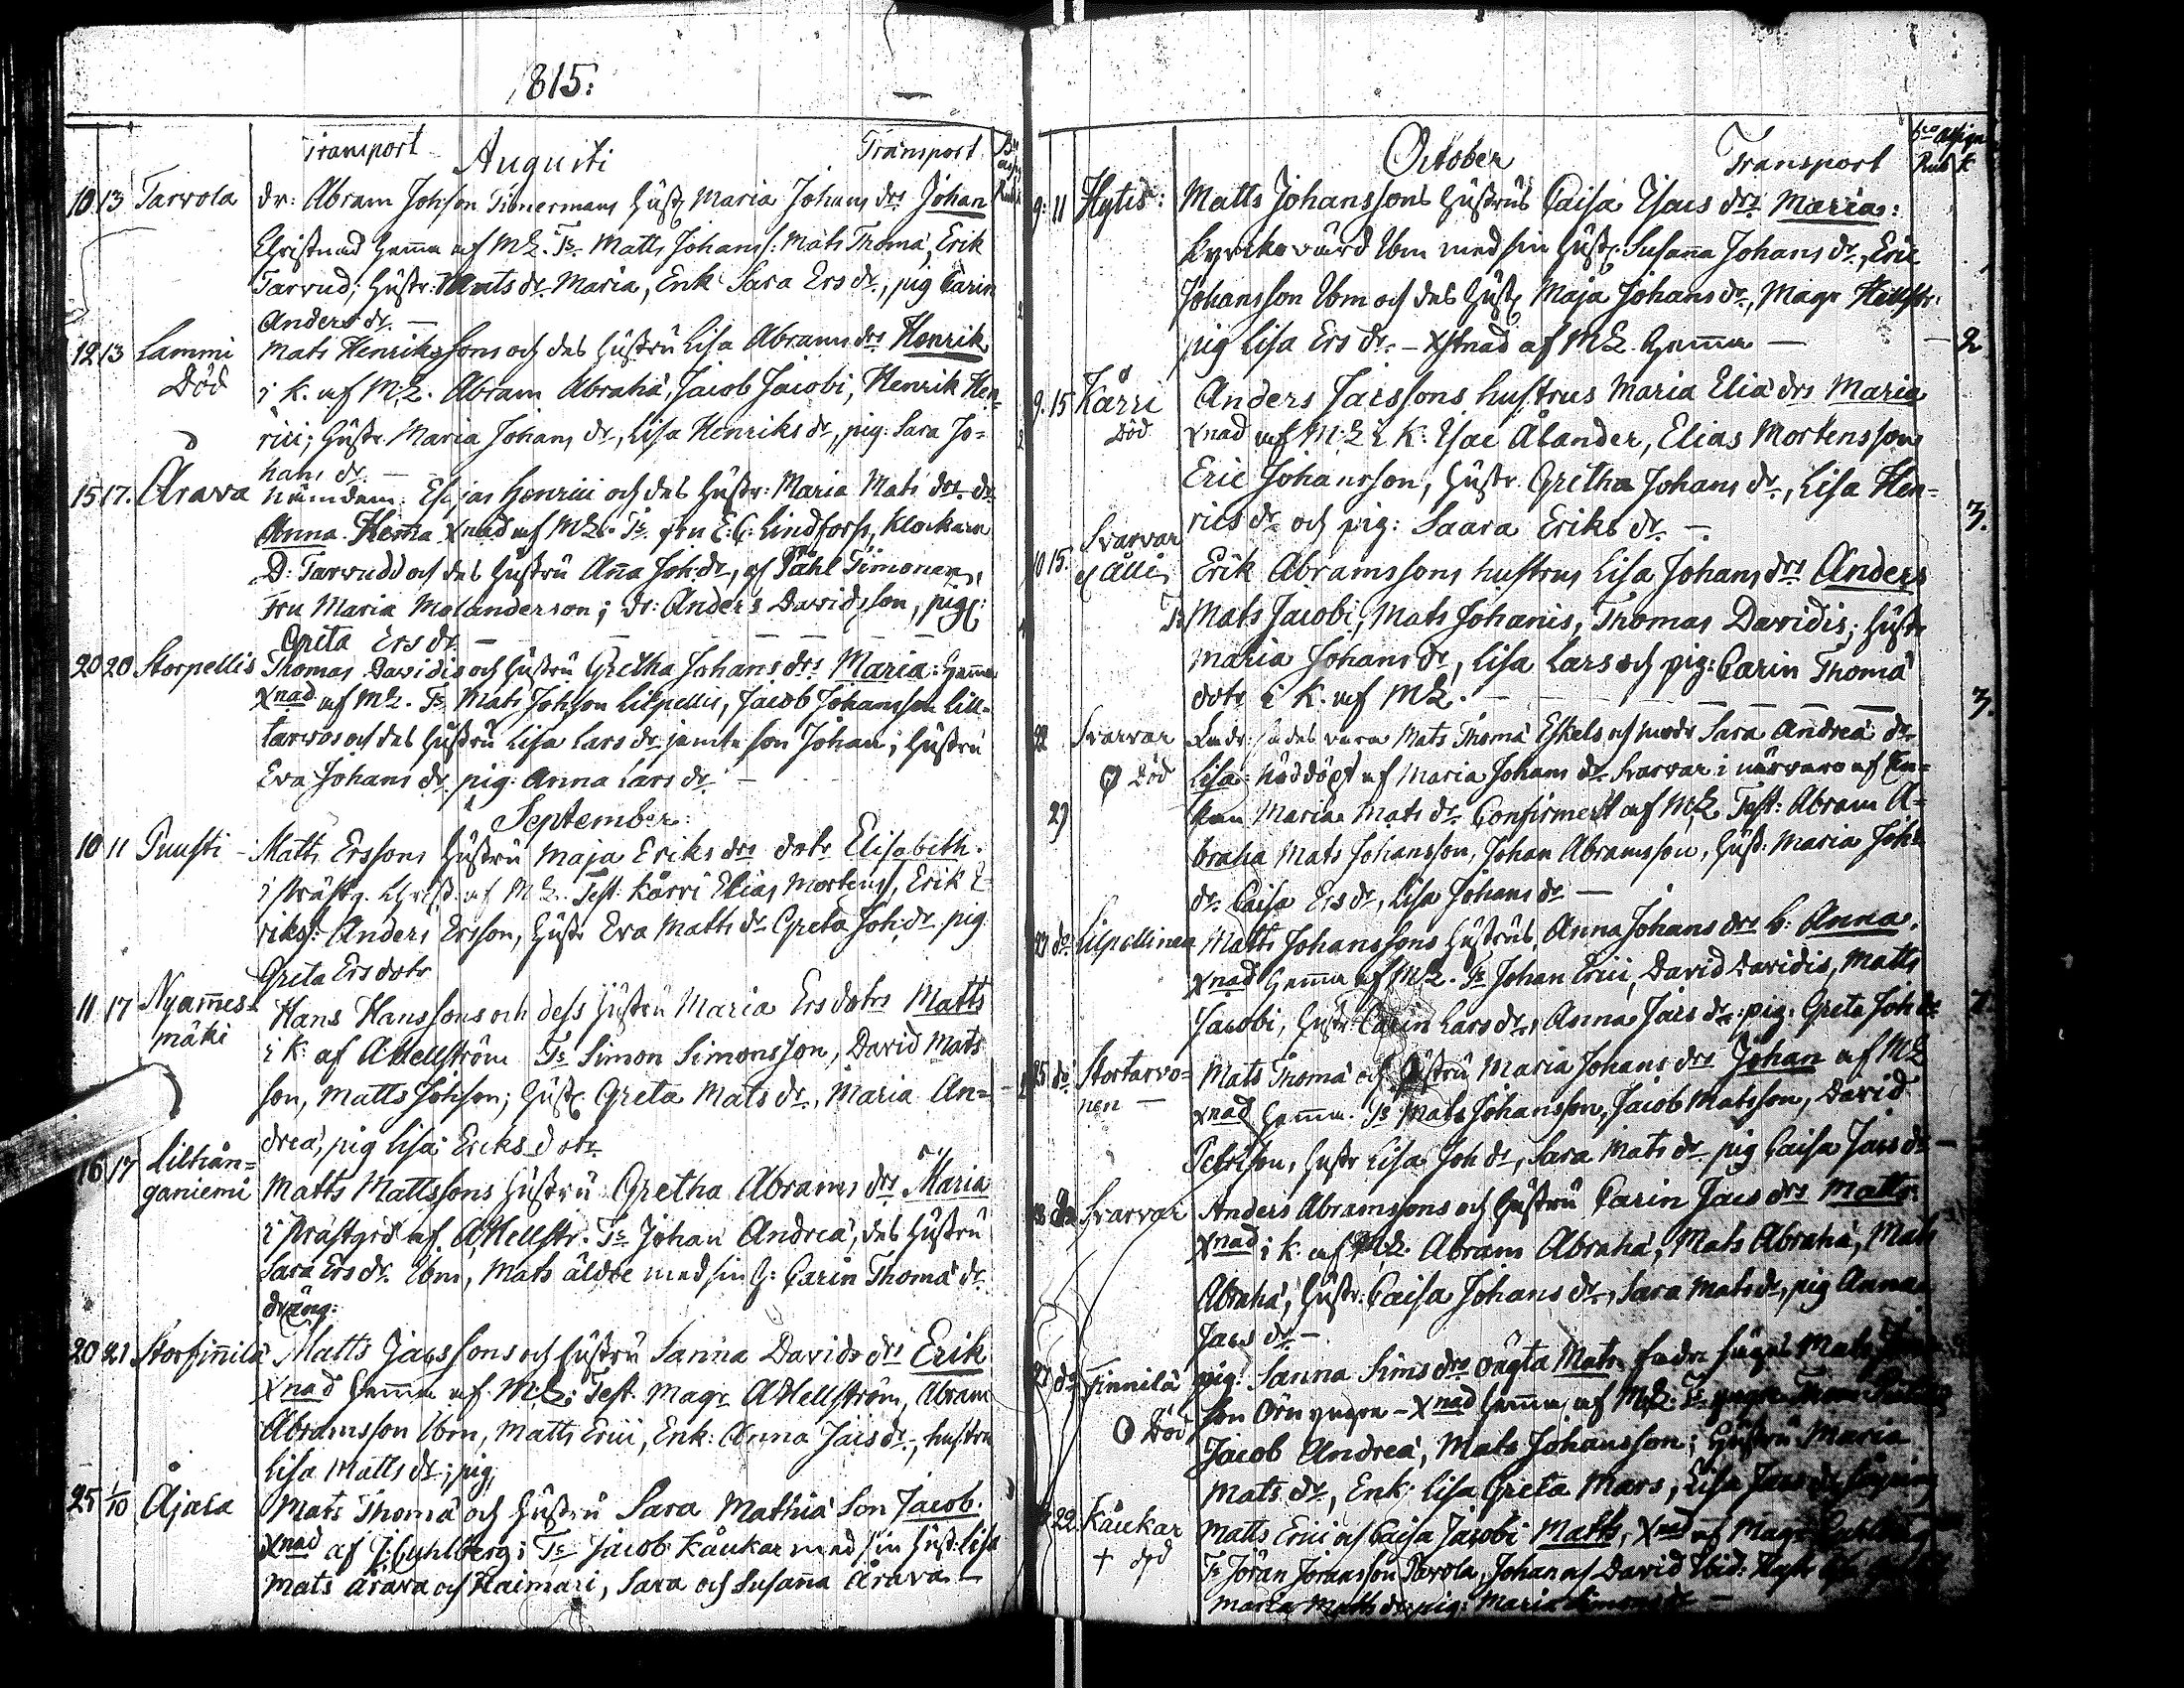 1815:
Transport Augusti Transport
10 13 Tarvola dr: Abram Johson Timmermans Hustr Maria Johans drs Johan
Christnad hemma af ML. Ts. Matts Johans: Mats Thomæ, Erik
Tarvud; Hustr: Mats dr Maria, Enk Sara Ers dr, pig Carin
Anders dr. —
12 13 Lammi Mats Henrikssons och des hustru Lisa Abrams drs Henrik
Död i K. af M.L. Abram Abrahæ, Jacob Jacobi, Henrik Hen-
rici; Hustr Maria Johans dr, Lisa Henriks dr, pig: Sara Jo-
hans dr. —
15 17. Årava Nämdem. Esajas Henrici och des Hustr: Maria Mats drs dr
Anna Hema Xnad af ML. Ts. fru E: C: Lindfors, Klockare
D: Tarvudd och des Hustru Anna Joh dr, Påhl Timonen,
Fru Maria Molanderson; dr: Anders Davidsson, pig:
Greta Ers dr —
20 20 Storpellis Thomas Davidis och Hustru Gretha Johans drs Maria: hemma
Xnad af ML. Ts. Mats Johson Lilpellis, Jacob Johansson Lill-
tarvos och des Hustru Lisa Lars dr jemte son Johan; Hustru
Eva Johans dr pig: Anna Lars dr —
September:
10 11 Puusti - Matts Erssons Hustru Maja Eriks drs dotr Elisabeth.
i Prästg. Christ: af ML. Test. Kårri Elias Mortenss, Erik E-
rikss: Anders Ersson, Hustr Eva Matts dr Greta Joh dr pig
Greta Ers dotr
11 17 Nyammes- Hans Hanssons och dess Hustru Maria Ers dotrs Matts
mäki i K. af AHellström Ts Simon Simonsson, David Mats-
son, Matts Johson; Hustr. Greta Mats dr, Maria An-
dreæ, pig Lisa Eriks dotr
16 17 Lilhån- Matts Mattssons Hustru Gretha Abrams drs Maria
ganiemi i Prästgrd af AHellstr. Ts Johan Andreæ, des Hustru
Sara Ers dr Ibm, Mats äldre med sin H: Carin Thomæ dr
dräng:
20 21 Storfinnilä Matts Jacssons och hustru Sanna Davids drs Erik
Xnad hemma af ML: Test. Magr AHellström, Abram
Abramsson Ibm, Matts Erici, Enk: Anna Jacs dr, hustru
Lisa Matts dr; pig,
25 1/10 Åjala Mats Thomæ och Hustru Sara Mathiæ Son Jacob.
Xnad af J: Cuhlberg; Ts Jacob Kåukar med sin Hust: Lisa
Mats Årava och Haimari, Sara och Susanna Årava —
October Transport
9. 11 Hytis: Matts Johanssons Hustrus Caisa Isacs drs Maria:
Kyrkovärd Ibm med sin Hustr Susanna Johans dr, Eric
Johansson Ibm och des Hustr Maja Johans dr, Magr Hellstr:
pig Lisa Ers dr. – Xstnad af ML hemma — 2
9. 15 Kårri Anders Jacssons hustrus Maria Eliæ drs Maria
Död Xnad af M:L i K: Isac Ålander, Elias Mortensson
Eric Johansson, Hustr Gretha Johans dr, Lisa Hen-
rics dr och pig: Saara Eriks dr — 3.
10 15. Svarvar Erik Abramssons hustrus Lisa Johans drs Anders
Ts Mats Jacobi, Mats Johanis, Thomas Davidis; Hustr
Maria Johans dr, Lisa Lars och pig: Carin Thomæ
dotr i K. af ML. — 3.
22 Svarvar Mats Thomæ Eskels och modr Sara Andreæ dr
Död Lisa: Nöddöpt af Maria Johans dr Svarvar i närvaro af En-
29 kan Maria Mats dr Confirmert af ML Test: Abram A-
braha Mats Johansson, Johan Abramsson, Hust: Maria Joh:
dr Caisa Ers dr, Lisa Johans dr —
do Lilpellinen Matts Johanssons Hustrus Anna Johans drs b: Anna.
Xnad hemma af ML. Ts Johan Erici, David Davidis, Matts
Jacobi, Hustr: Carin Lars dr, Anna Jacs dr: pig: Greta Joh dr
do Stortarvo- Mats Thomæ och Hustru Maria Johans drs Johan af ML
nen — Xnad hemma. Ts Mats Johansson, Jacob Matsson, David
Petrison, Hustr Lisa Joh dr, Sara Mats dr pig Caisa Jacs dr —
Svarvar Anders Abramssons och Hustru Carin Jacs drs Matts
Xnad i K. af ML. Abram Abrahæ, Mats Abrahæ, Mats
Abrahæ, Hustr: Caisa Johans dr, Sara Mats dr, pig Anna
Jacs dr —
do Finnilä pig: Sanna Sims drs oägta Mats fadr säges Mats
son Örn yngre – Xnad hemma af ML: Ts
Död Jacob Andreæ, Mats Johansson; Hustru Maria
Mats dr, Enk: Lisa Greta Mars, Lisa Jacs dr
22 Kåukar Matts Erici och Caisa Jacobi Matts, Xnad af Magr Cuhlberg
+ död Ts Jöran Joransson Parola, Johan och David Ibid:
Maria Matts dr pig: Maria Simons dr —